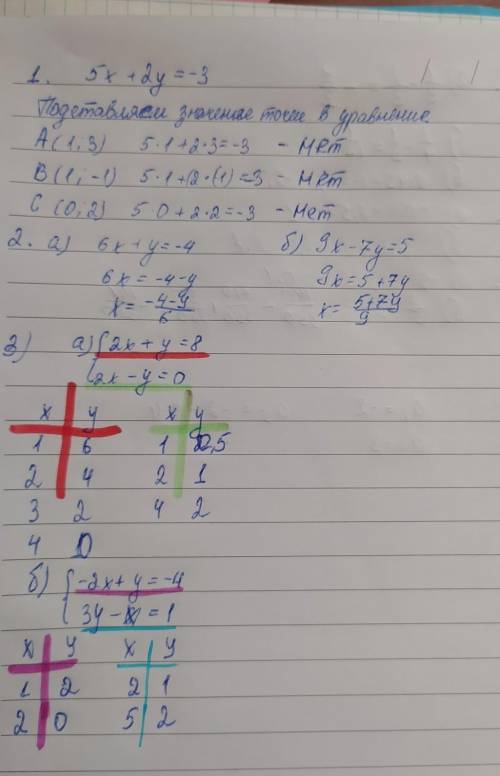 1. 5x + 2y = -3
Подставляем значение точек в уравнение
A (1, 3) 5·1+2·3=-3 - Нет
B (1; -1) 5·1+(2·(1)=3 - Нет
C (0, 2) 5·0+2·2=-3 - Нет
2. а) 6x+y=-4 б) 9x-7y=5
6x = -4-y 9x=5+7y
x= -4-y/6 x= 5+7y/9
3) а) {2x+y=8
{2x-y=0
x y x y
1 6 1 0,5
2 4 2 1
3 2 4 2
4 0
б) {-2x+y=-4
{3y-x=1
x y x y
1 2 2 1
2 0 5 2